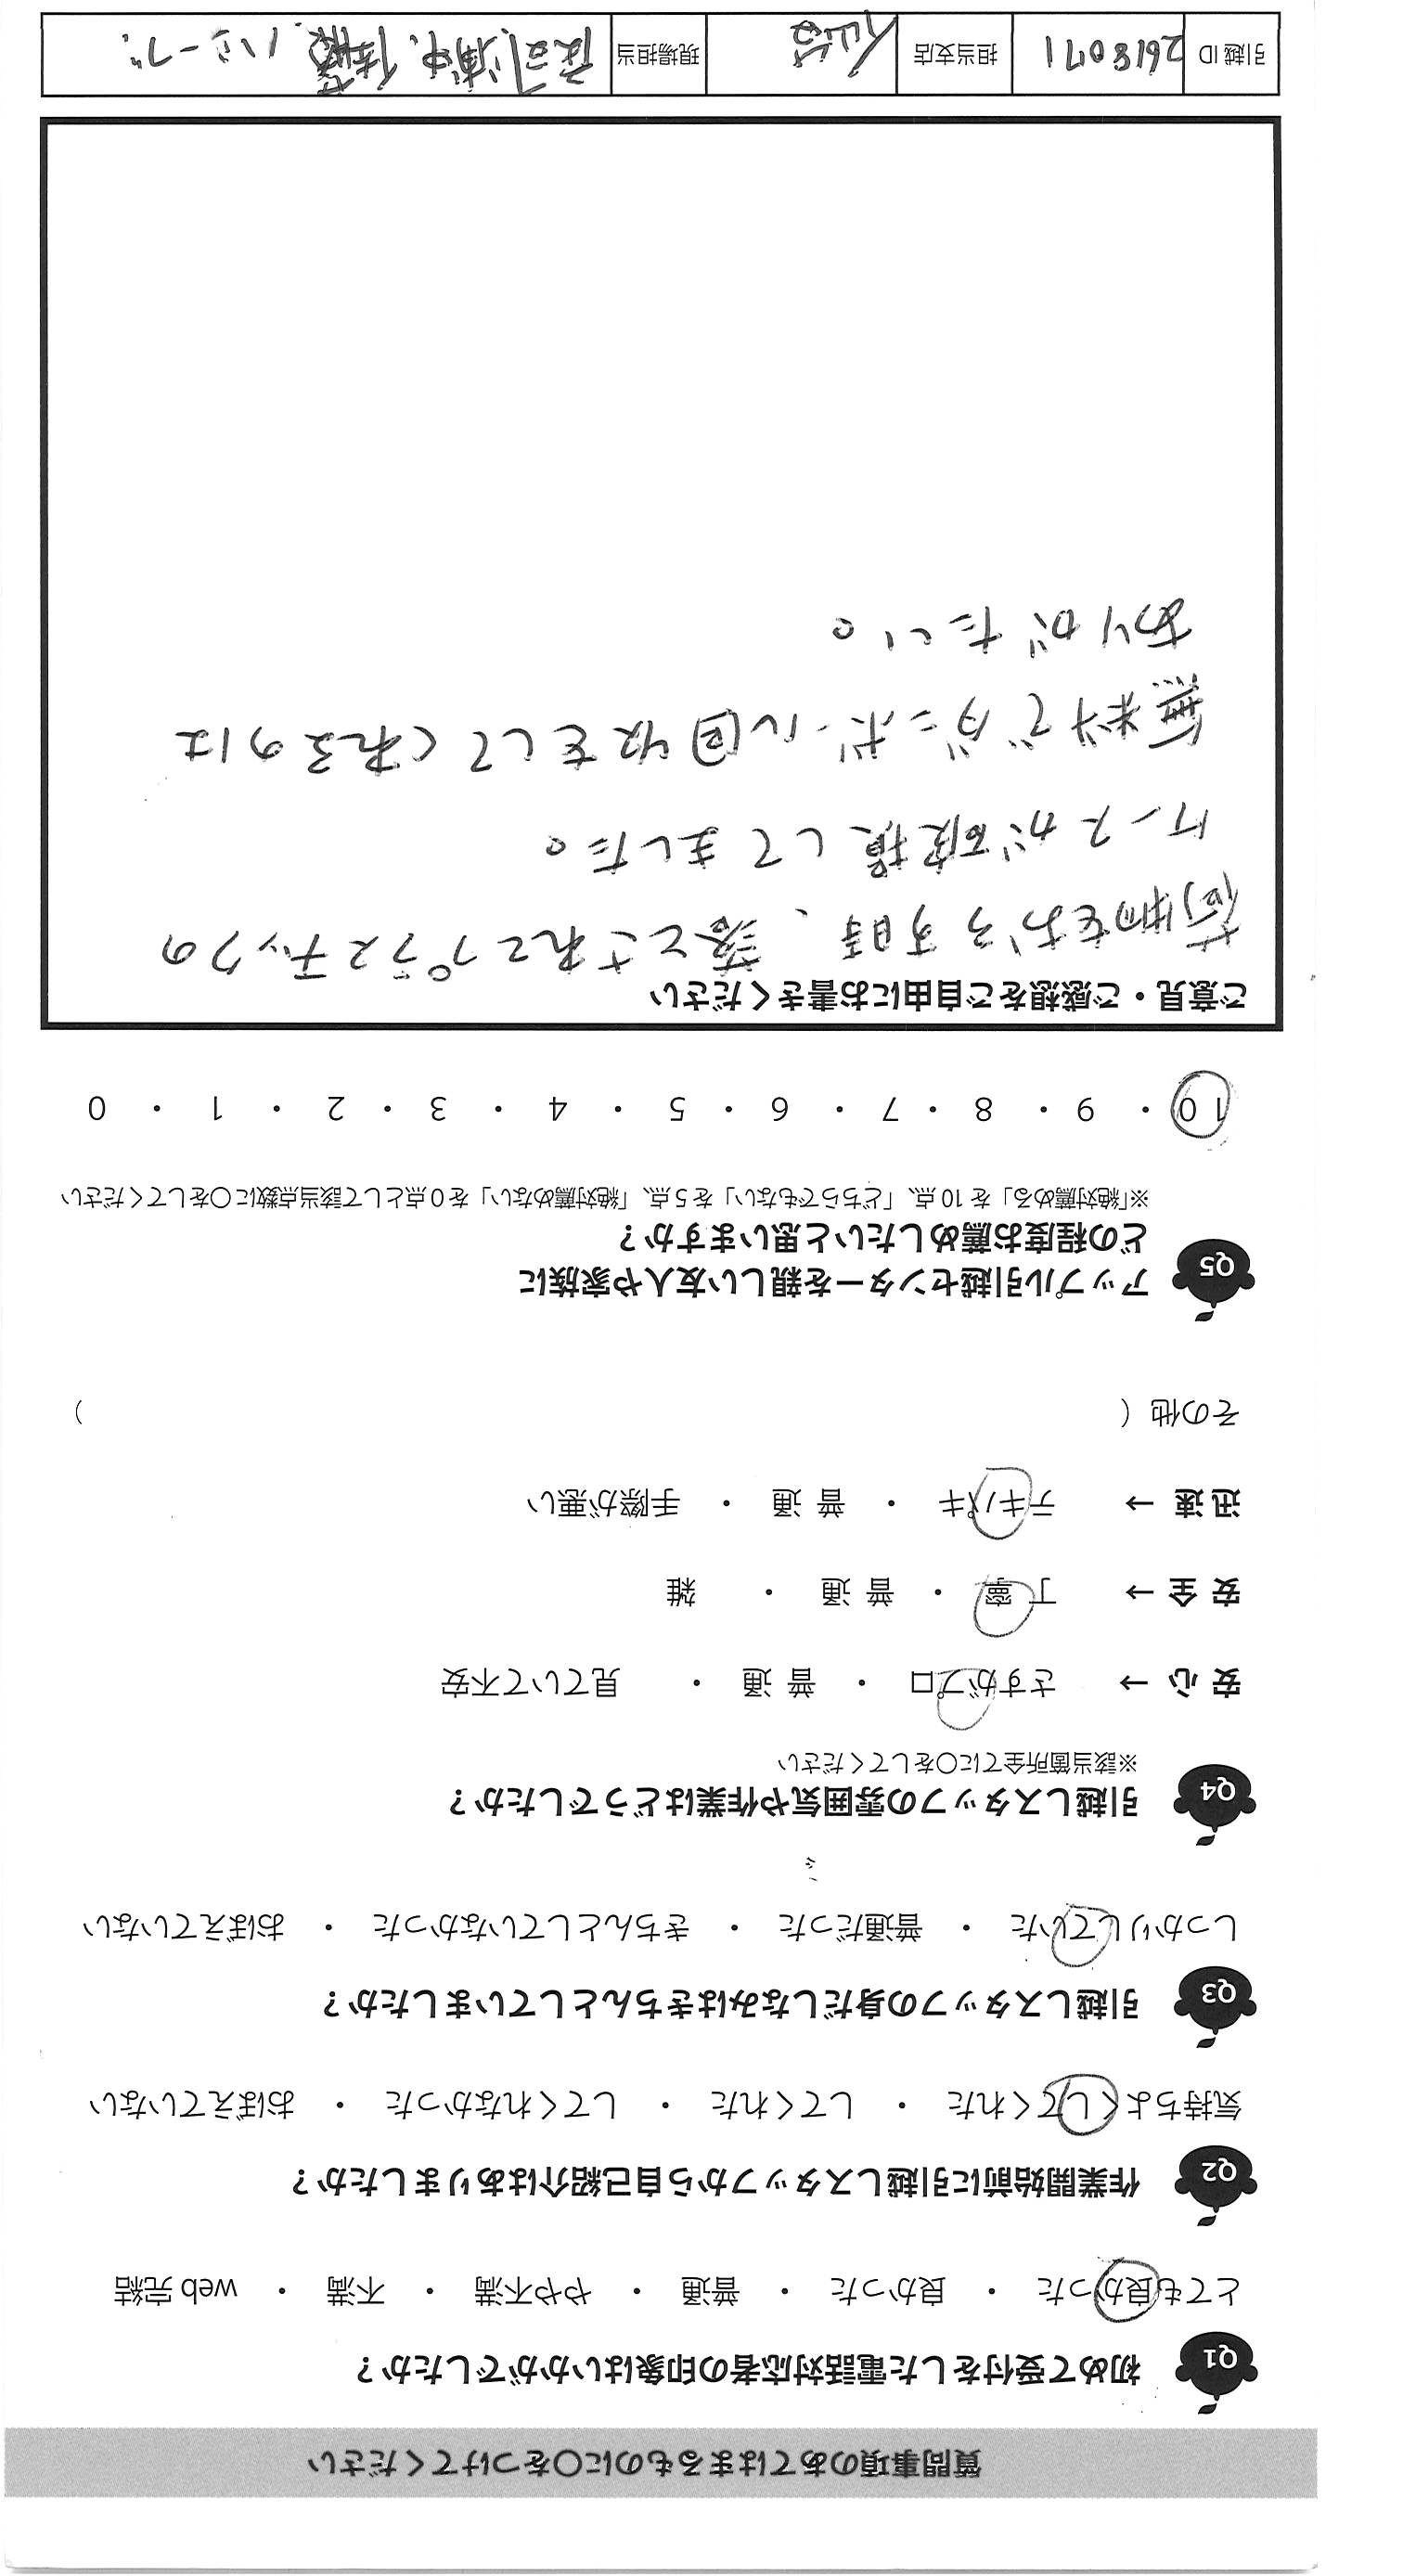 質問事項のあてはまるものに〇をつけてください
Q1 初めて受付をした電話対応者の印象はいかがでしたか？
とても良かった ・ 良かった ・ 普通 ・ やや不満 ・ 不満 ・ web 完結
Q2 作業開始前に引越しスタッフから自己紹介はありましたか？
気持ちよくしてくれた ・ してくれた ・ してくれなかった ・ おぼえていない
Q3 引越しスタッフの身だしなみはきちんとしていましたか？
しっかりしていた ・ 普通だった ・ きちんとしていなかった ・ おぼえていない
Q4 引越しスタッフの雰囲気や作業はどうでしたか？
※該当箇所全てに〇をしてください
安 心 → さすがプロ ・ 普 通 ・ 見ていて不安
安 全 → 丁 寧 ・ 普 通 ・ 雑
迅 速 → テキパキ ・ 普 通 ・ 手際が悪い
その他（ ）
Q5 アップル引越センターを親しい友人や家族に
どの程度お薦めしたいと思いますか？
※「絶対薦める」を 10 点、「どちらでもない」を 5 点、「絶対薦めない」を 0 点として該当点数に〇をしてください
10 ・ 9 ・ 8 ・ 7 ・ 6 ・ 5 ・ 4 ・ 3 ・ 2 ・ 1 ・ 0
ご意見・ご感想をご自由にお書きください
荷物をおろす時、落とされてプラスチックの
ケースが破損してました。
無料でダンボール回収をしてくれるのは
ありがたい。
引越 ID 2618071 担当支店 仙台 現場担当